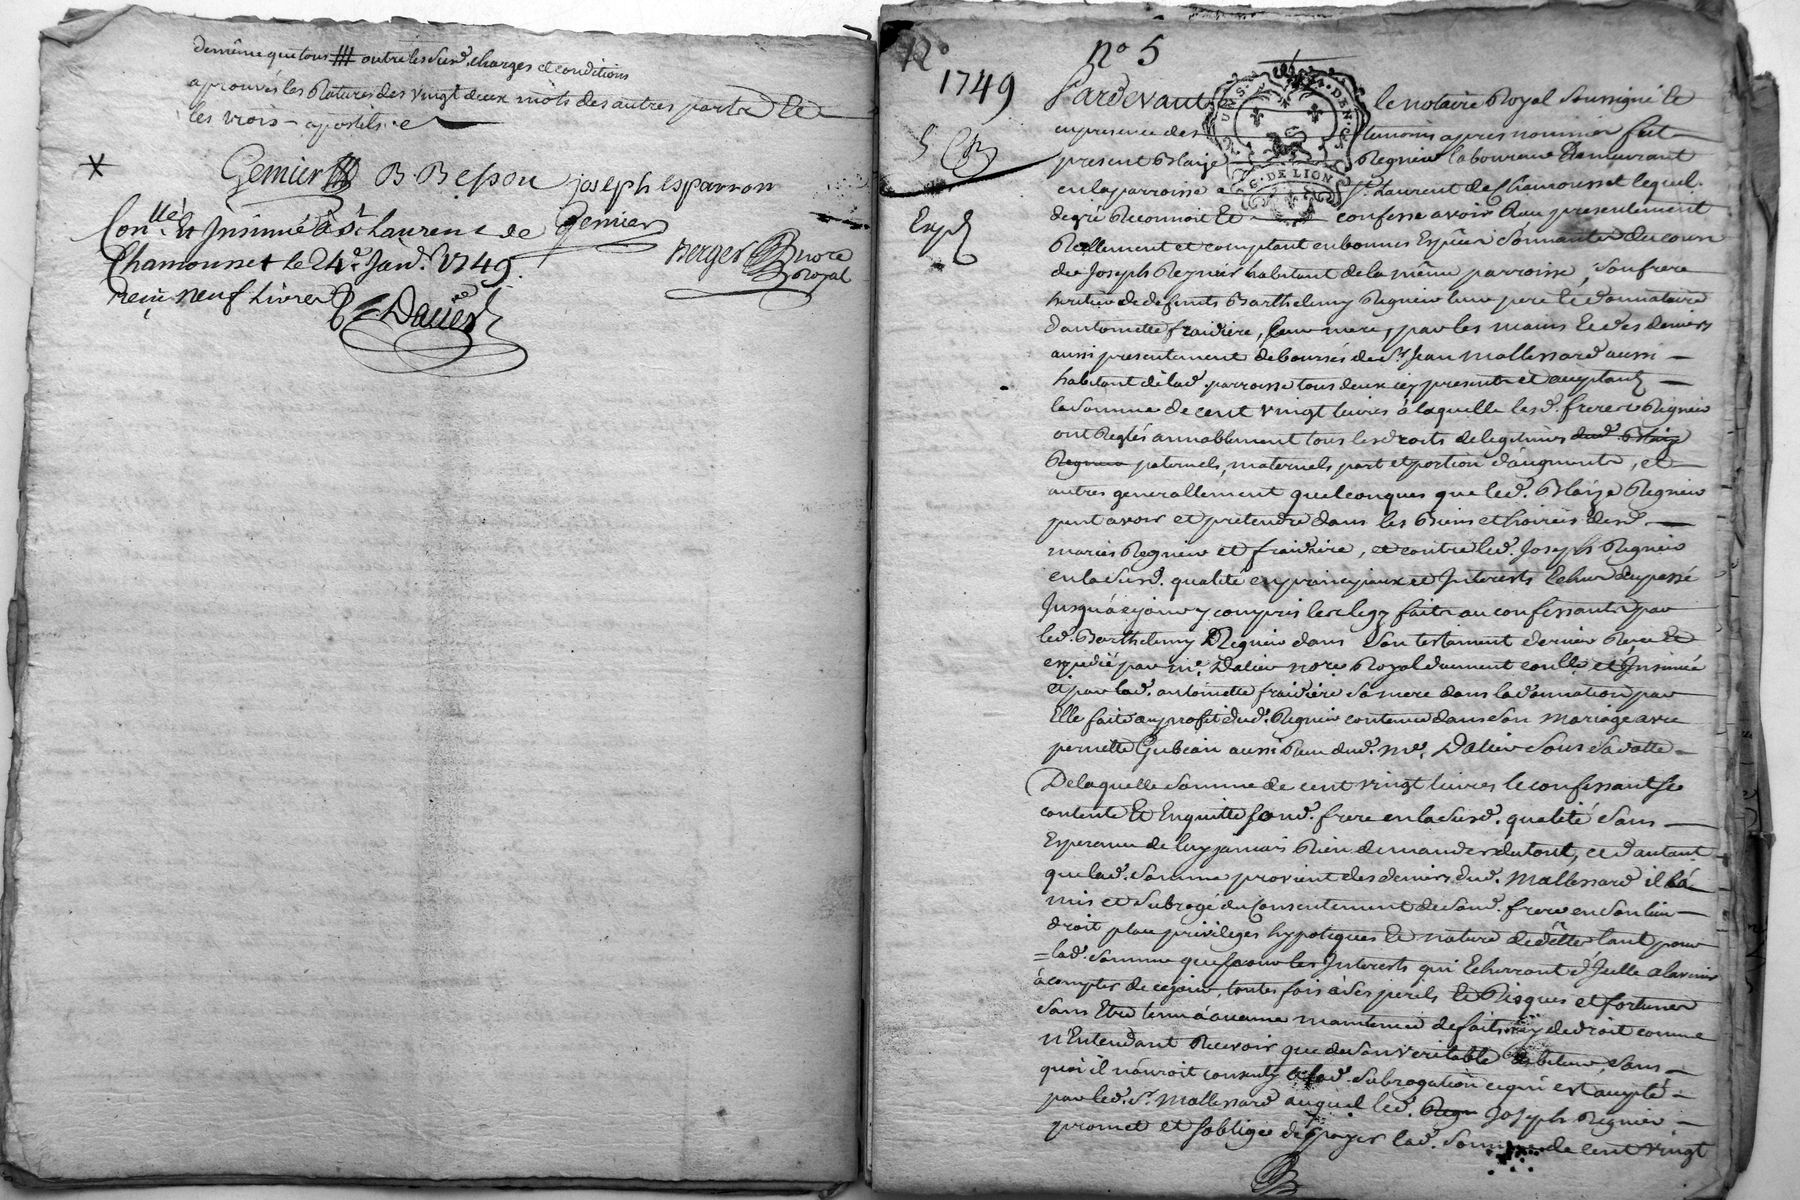 de même que tous outre les susd. charges et conditions
aprouvés les Ratures des vingt deux mots des autres parts et
les trois apostils
Gemier B. Bepou joseph esparron
Con.llé et Insinué à St Laurent de Gemier
Chamousset le 24e Janv. 1749. Berger nore
Reçu neuf Livres Royal
Dalier
no 5
1749
5
Expd
GÑAL. DE LION
Pardevant le notaire Royal soussigné et
en presence des temoins apres nommés fut
present Blaize Regnier laboureur Demeurant
en la parroisse St. Laurent de Chamousset lequel
de gré Reconnoit Et confesse avoir Reçu presentement
Reellement et comptant en bonnes Espèces sonnantes du cours
de Joseph Regnier habitant de la même parroisse, son frere
heritier de defunts Barthelemy Regnier leur pere et donnataire
d'antoinette fraidiere, leur mere, par les mains et des deniers
aussi presentement deboursés de sr. Jean Mallessard aussi
habitant de lad. parroisse tous deux icy presents et acceptants
la Somme de cent vingt livres à laquelle lesd. freres Regnier
ont Reglés amiablement tous les droits de legitimes dud. Blaize
Regnier paternels, maternels, part et portion d'augments, et
autres generallement quelconques que led. Blaize Regnier
peut avoir et pretendre dans les Biens et hoiries desd.
mariés Regnier et fraidiere, et contre led. Joseph Regnier
en la susd. qualité en principaux et Interests Echus du passé
Jusqu'à ce jour y compris les legs faits au confessant par
led. Barthelemy Regnier dans son testament dernier Reçu Et
expedié par me. Dalier nore Royal duement conllé et Insinué
et par lad. antoinette fraidiere sa mere dans la donnation par
Elle faite au profit dud. Regnier contenue dans son mariage avec
pernette Gubian aussi Reçu dud. me. Dalier sous sa datte
De laquelle somme de cent vingt livres le confessant se
contente Et Enquitte sond. frere en la susd. qualité sans
Esperance de luy jamais Rien demander du tout, et d'autant
que lad. somme provient des deniers dud. Mallessard il l'a
mis et subrogé du consentement de sond. frere en son lieu
droit place privileges hypoteques Et nature de dette tant pour
lad. somme que pour les Interests qui Echerront d'Icelle a l'avenir
à compter de ce jour, toutes fois à ses perils Et Risques et fortunes
sans Etre tenu à aucune maintenue de fait ny de droit comme
n'Entendant Recevoir que de son veritable debiteur, sans
quoi il n'auroit consenty a lad. subrogation ce qui est accepté
par led. sr. Mallessard auquel led. Regn Joseph Regnier
promet et s'oblige de payer lad. somme de cent vingt